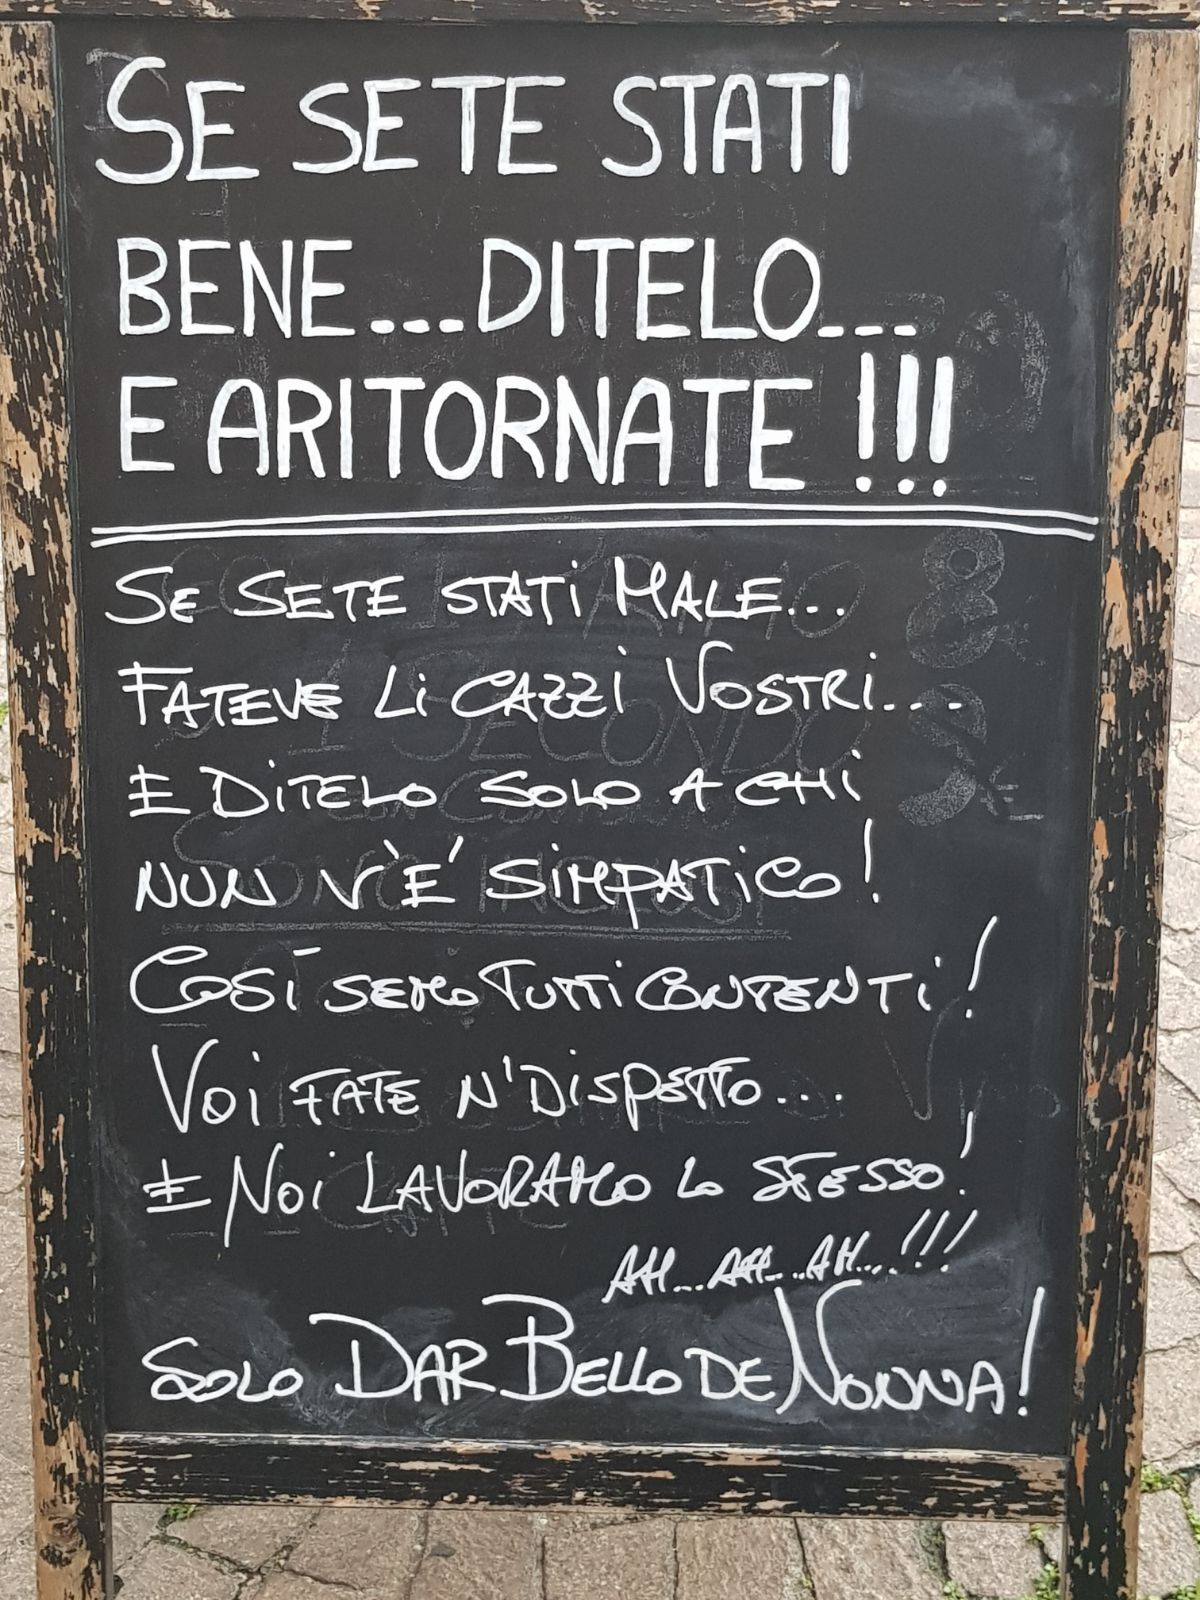 SE SETE STATI
BENE...DITELO...
E ARITORNATE !!!
SE SETE STATI MALE...
FATEVE LI CAZZI VOSTRI...
E DITELO SOLO A CHI
NUN V'È SIMPATICO!
COSÍ SEMO TUTTI CONTENTI!
VOI FATE N'DISPETTO...
E NOI LAVORAMO LO STESSO!
AH...AH...AH...!!!
SOLO DAR BELLO DE NONNA!